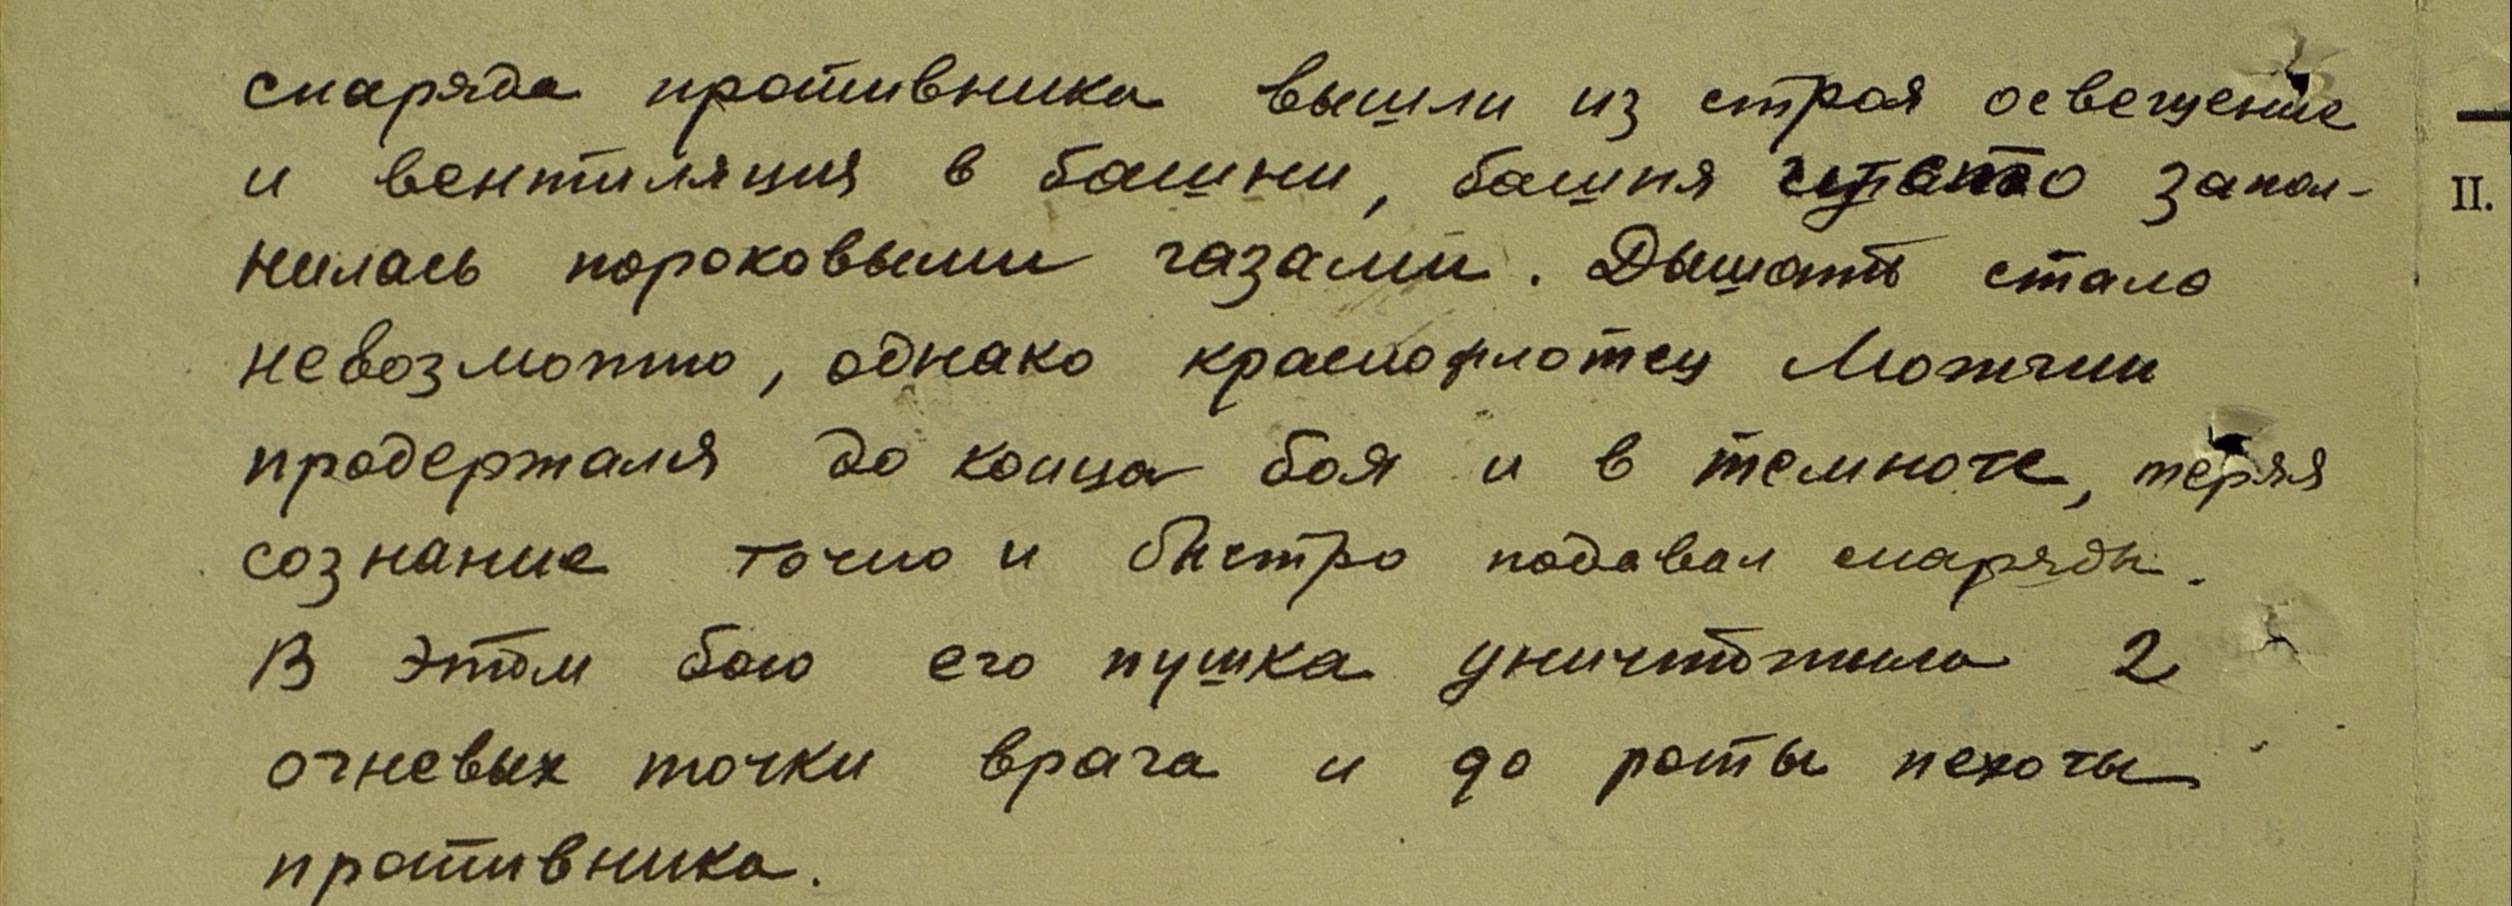 снаряда противника вышли из строя освещение
и вентиляция в башни, башня густо запол-
нилась пороховыми газами. Дышать стало
невозможно, однако краснофлотец
продержался до конца боя и в темноте, теряя
сознание точно и быстро подавал снаряды.
В этом бою его пушка уничтожила 2
огневых точки врага и до роты пехоты
противника.
II.